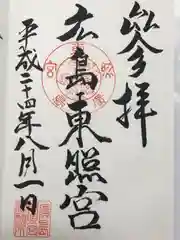 参拝
広島東照宮
平成二十四年八月一日